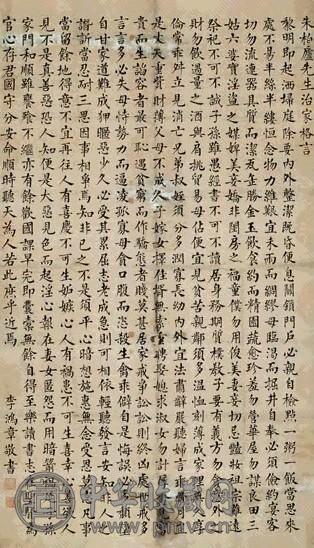 朱柏廬先生治家格言
黎明即起洒掃庭除要內外整潔既昏便息關鎖門戶必親自檢點一粥一飯當思來
處不易半絲半縷恒念物力維艱宜未雨而綢繆毋臨渴而掘井自奉必須儉約宴客
切勿流連器具質而潔瓦缶勝金玉飲食約而精園蔬愈珍羞勿營華屋勿謀良田三
姑六婆實淫盜之媒婢美妾嬌非閨房之福童僕勿用俊美妻妾切忌豔妝祖宗雖遠
祭祀不可不誠子孫雖愚經書不可不讀居身務期質樸教子要有義方勿貪意外之
財勿飲過量之酒與肩挑貿易毋佔便宜見貧苦親鄰須多溫恤刻薄成家理無久享
倫常乖舛立見消亡兄弟叔姪須分多潤寡長幼內外宜法肅辭嚴聽婦言乖骨肉豈
是丈夫重貲財薄父母不成人子嫁女擇佳壻毋索重聘娶媳求淑女勿計厚奩見富
貴而生諂容者最可恥遇貧窮而作驕態者賤莫甚居家戒爭訟訟則終凶處世戒多
言言多必失毋恃勢力而逼凌孤寡毋貪口腹而恣殺生禽乖僻自是悔誤必多頹惰
自甘家道難成狎暱惡少久必受其累屈志老成急則可相依輕聽發言安知非人之
譖訴當忍耐三思因事相爭焉知非己之不是須平心暗想施惠無念受恩莫忘凡事
當留餘地得意不宜再往人有喜慶不可生妒嫉心人有禍患不可生喜幸心善欲人
見不是真善惡恐人知便是大惡見色而起淫心報在妻女匿怨而用暗箭禍延子孫
家門和順雖饔飧不繼亦有餘歡國課早完即囊橐無餘自得至樂讀書志在聖賢為
官心存君國守分安命順時聽天為人若此庶乎近焉
李鴻章敬書